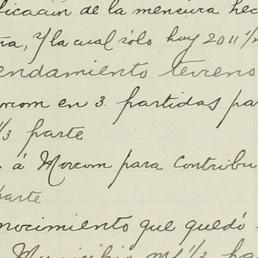 ficación de la mensura hec
ra, y la cual sólo hay 2011 1/2
endamiento terreno
orcom en 3 partidas pa
1/3 parte
s á Morcom para Contribu
parte
nocimiento que quedó
Municipio mi 1/3 pa